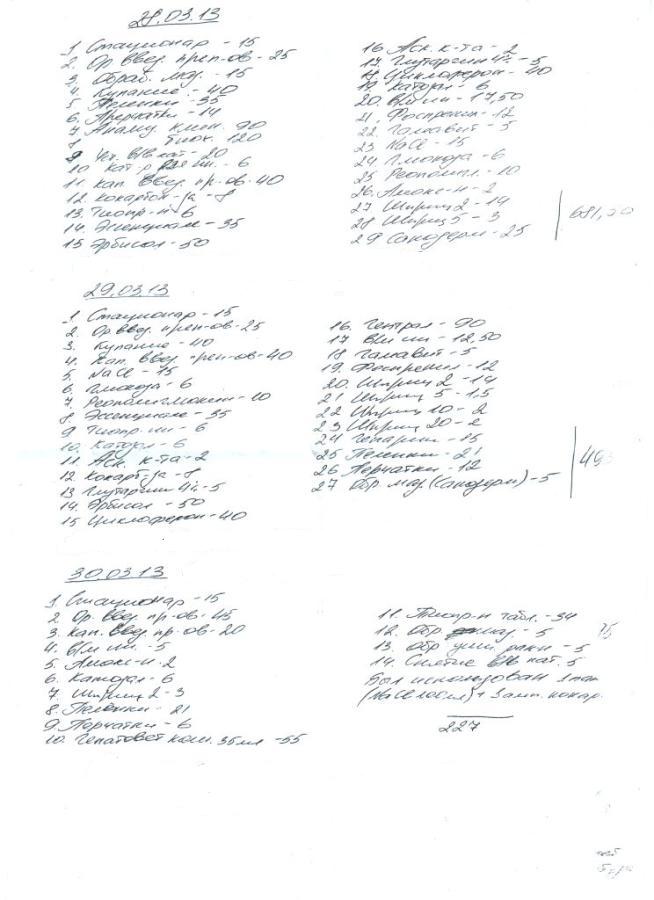 28.03.13
1 Стационар - 15
2. Ор. введ. преп-ов - 25
3. Обраб. маз. - 15
4. Купание - 40
5 Пеленки - 35
6. Перчатки - 14
7 Анализ клин. 90
8 биох. 120
9 Уст. в/в кат - 20
10 Кат-р - 6
11 Кап. введ. пр-ов - 40
12 Кокарбок-за - 8
13. Тиопр-н - 6
14. Эссенциале - 35
15 Эрбисол - 50
16 Аск. к-та - 2
17. Глутаргин 4% - 5
18 Циклоферон - 40
19 Катозал - 6
20. В/м ин - 17,50
21. Фоспренил - 12
22. Гамавит - 5
23 NaCl - 15
24 Глюкоза - 6
25 Реополигл. - 10
26. Амокс-н - 2
27 Шприц 2 - 14
28 Шприц 5 - 3
29 Санодерм - 25
29.03.13
1 Стационар - 15
2. Ор. введ. преп-ов - 25
3. Купание - 40
4. Кап. введ. преп-ов - 40
5. NaCl - 15
6. Глюкоза - 6
7. Реополиглюкин - 10
8 Эссенциале - 35
9 Тиопр-ин - 6
10. Катозал - 6
11. Аск. к-та - 2
12 Кокарб-за - 8
13 Глутаргин 4% - 5
14. Эрбисол - 50
15 Циклоферон - 40
16. Гептрал - 90
17 В/м ин - 12,50
18 Гамавит - 5
19. Фоспренил - 12
20. Шприц 2 - 14
21 Шприц 5 - 1.5
22 Шприц 10 - 2
23 Шприц 20 - 2
24 Гепарин - 15
25 Пеленки - 21
26 Перчатки - 12
27 Обр. маз. (Санодерм) - 5
30.03.13
1. Стационар - 15
2 Ор. введ. пр-ов - 45
3. Кап. введ. пр-ов - 20
4. В/м ин. - 5
5. Амокс-н 2
6. Катозал - 6
7. Шприц 2 - 3
8. Пеленки - 21
9. Перчатки - 6
10. Гепатовет 35мл - 55
11. Тиопр-н табл. - 34
12. Обр. маз. - 5
13. Обр. уш. раки - 5
14. Снятие в/в кат. 5
Был использован
(NaCl
227